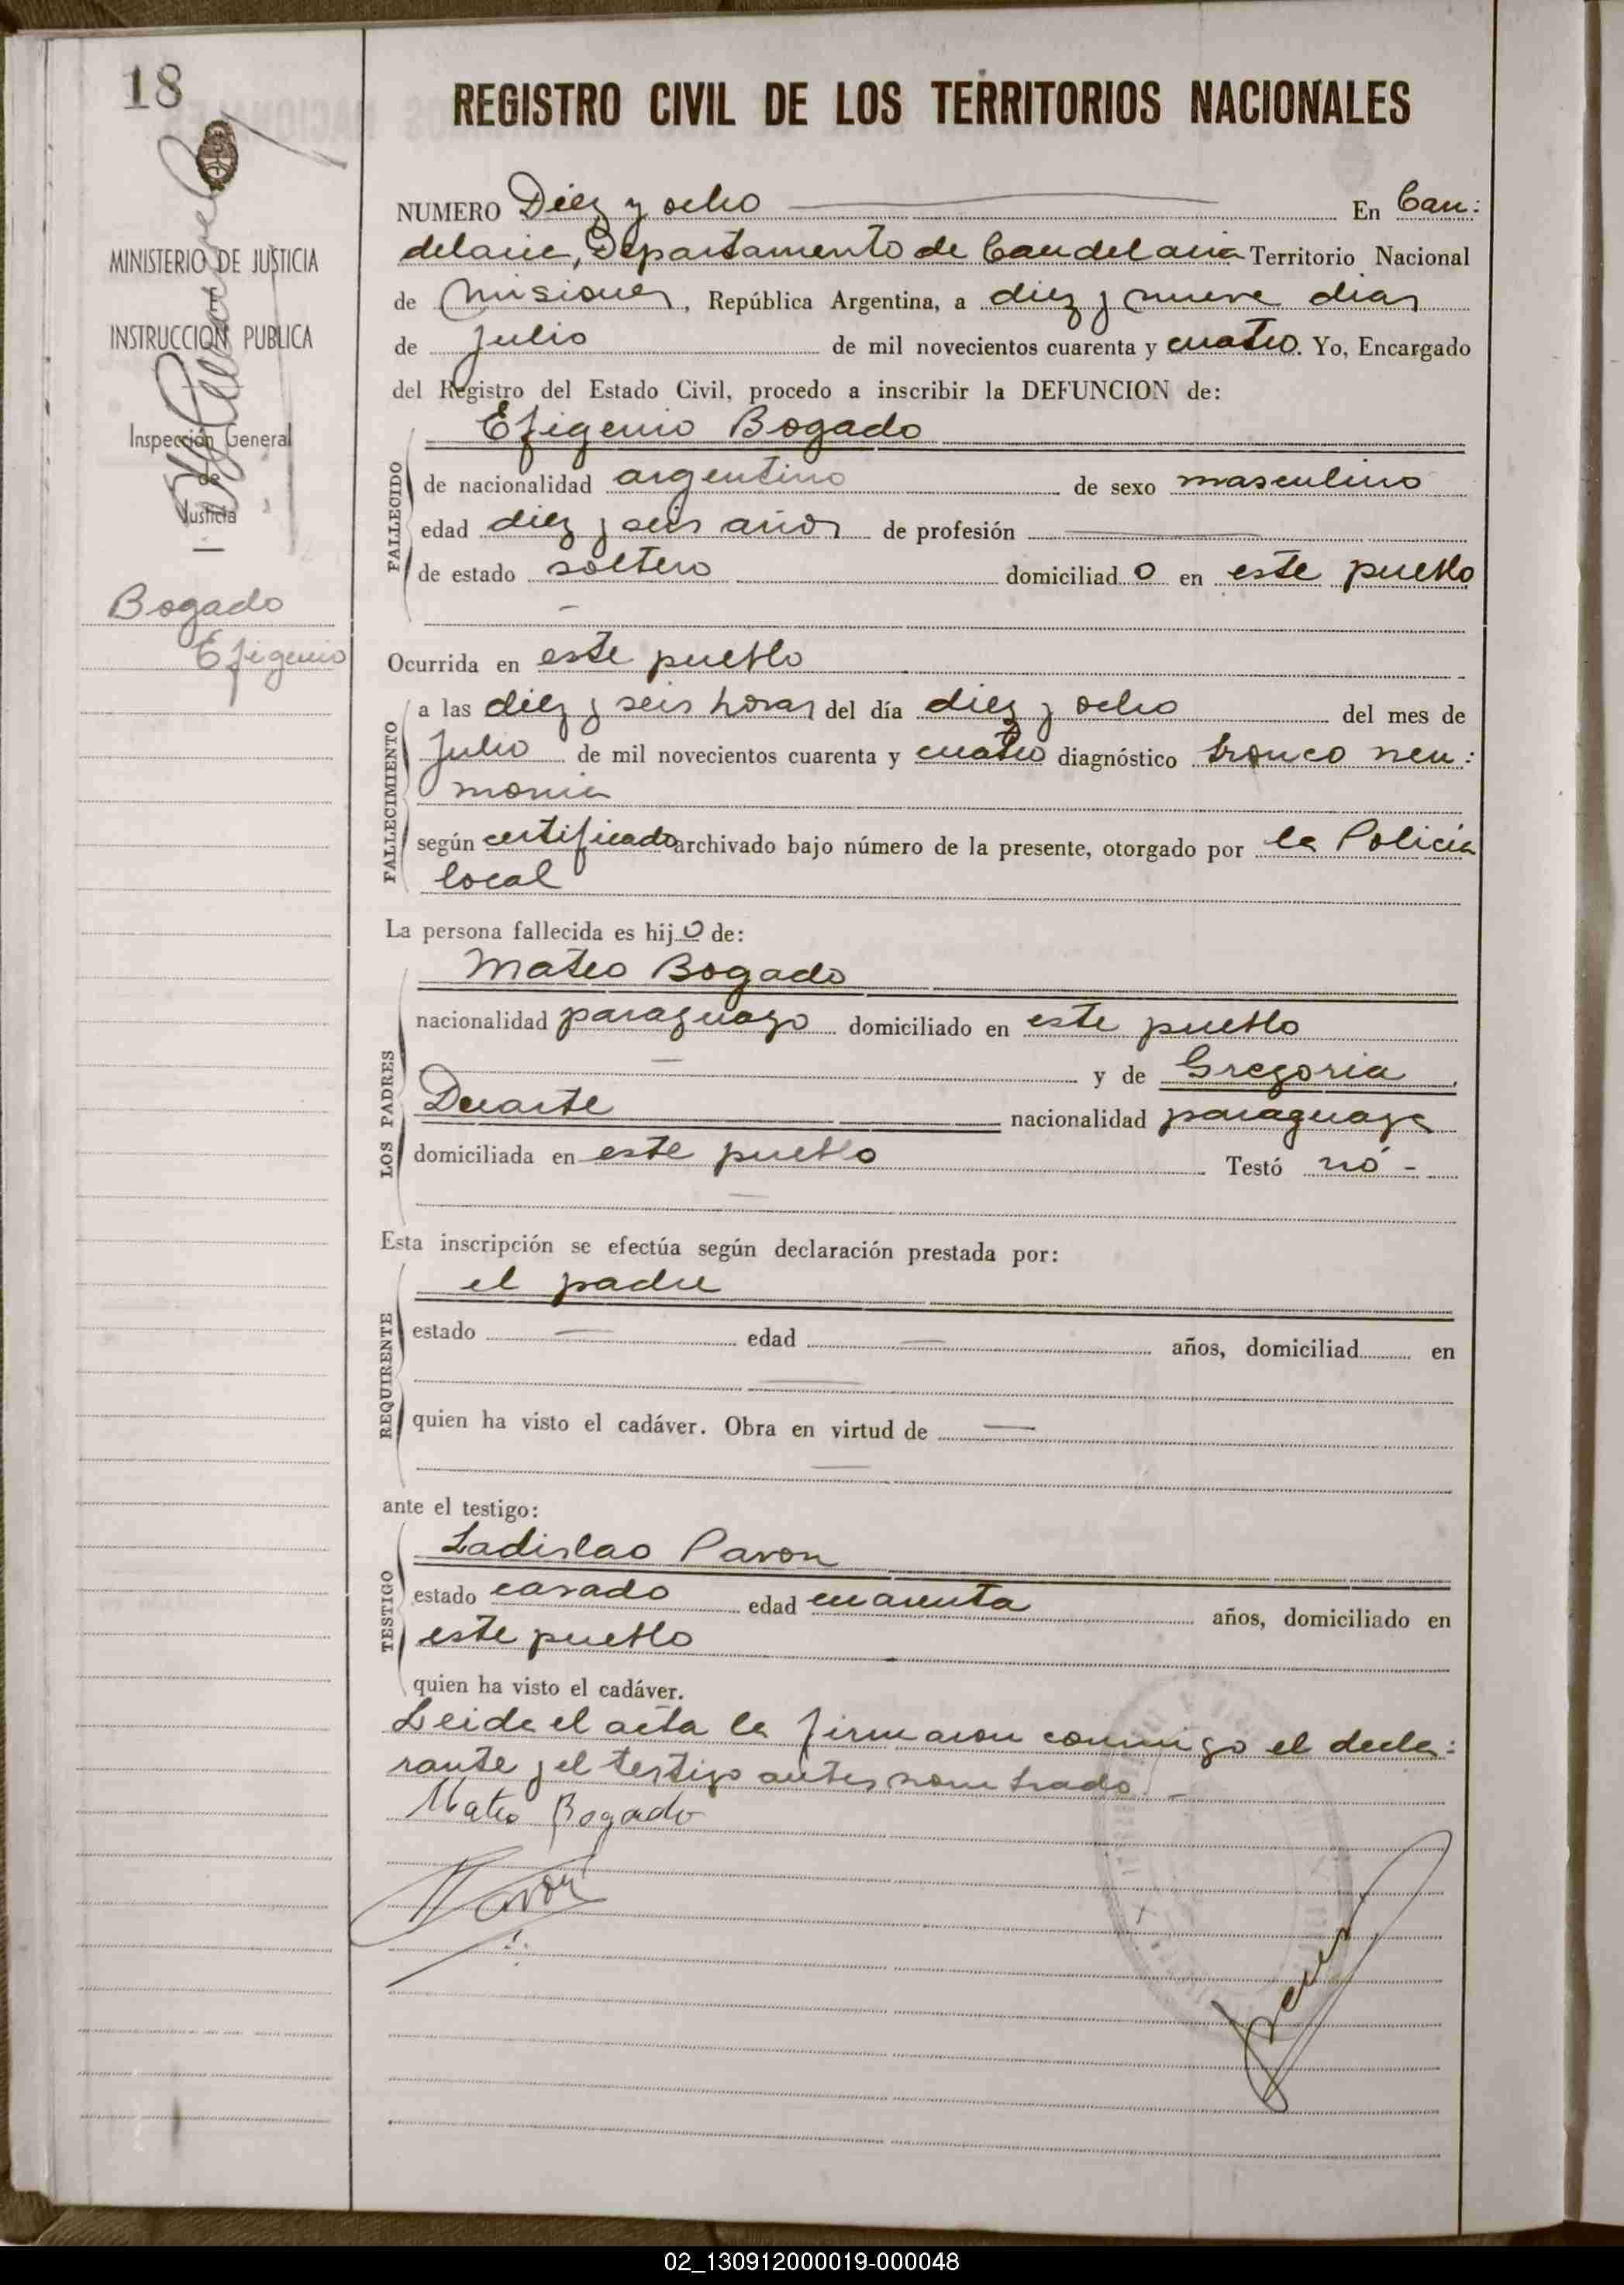 18
REGISTRO CIVIL DE LOS TERRITORIOS NACIONALES
MINISTERIO DE JUSTICIA
INSTRUCCION PUBLICA
Inspección General
de
Justicia
Bogado
Efigenio
NUMERO Diez y ocho En Can:
delaria, Departamento de Candelaria Territorio Nacional
de Misiones, República Argentina, a diez y nueve dias
de Julio de mil novecientos cuarenta y cuatro. Yo, Encargado
del Registro del Estado Civil, procedo a inscribir la DEFUNCION de:
Efigenio Bogado
FALLECIDO
de nacionalidad argentino de sexo masculino
edad diez y seis años de profesión
de estado soltero domiciliado en este pueblo
Ocurrida en este pueblo
FALLECIMIENTO
a las diez y seis horas del día diez y ocho del mes de
Julio de mil novecientos cuarenta y cuatro diagnóstico bronco neu:
monia
según certificado archivado bajo número de la presente, otorgado por la Policia
local
La persona fallecida es hijo de:
LOS PADRES
Mateo Bogado
nacionalidad paraguayo domiciliado en este pueblo
y de Gregoria
Duarte nacionalidad paraguaya
domiciliada en este pueblo Testó nó -
Esta inscripción se efectúa según declaración prestada por:
REQUIRENTE
el padre
estado edad años, domiciliad en
quien ha visto el cadáver. Obra en virtud de
ante el testigo:
TESTIGO
Ladislao Pavon
estado casado edad cuarenta años, domiciliado en
este pueblo
quien ha visto el cadáver.
Leida el acta la firmaron conmigo el decla:
rante y el testigo antes nombrado. -
Mateo Bogado
Pavon
02_130912000019-000048